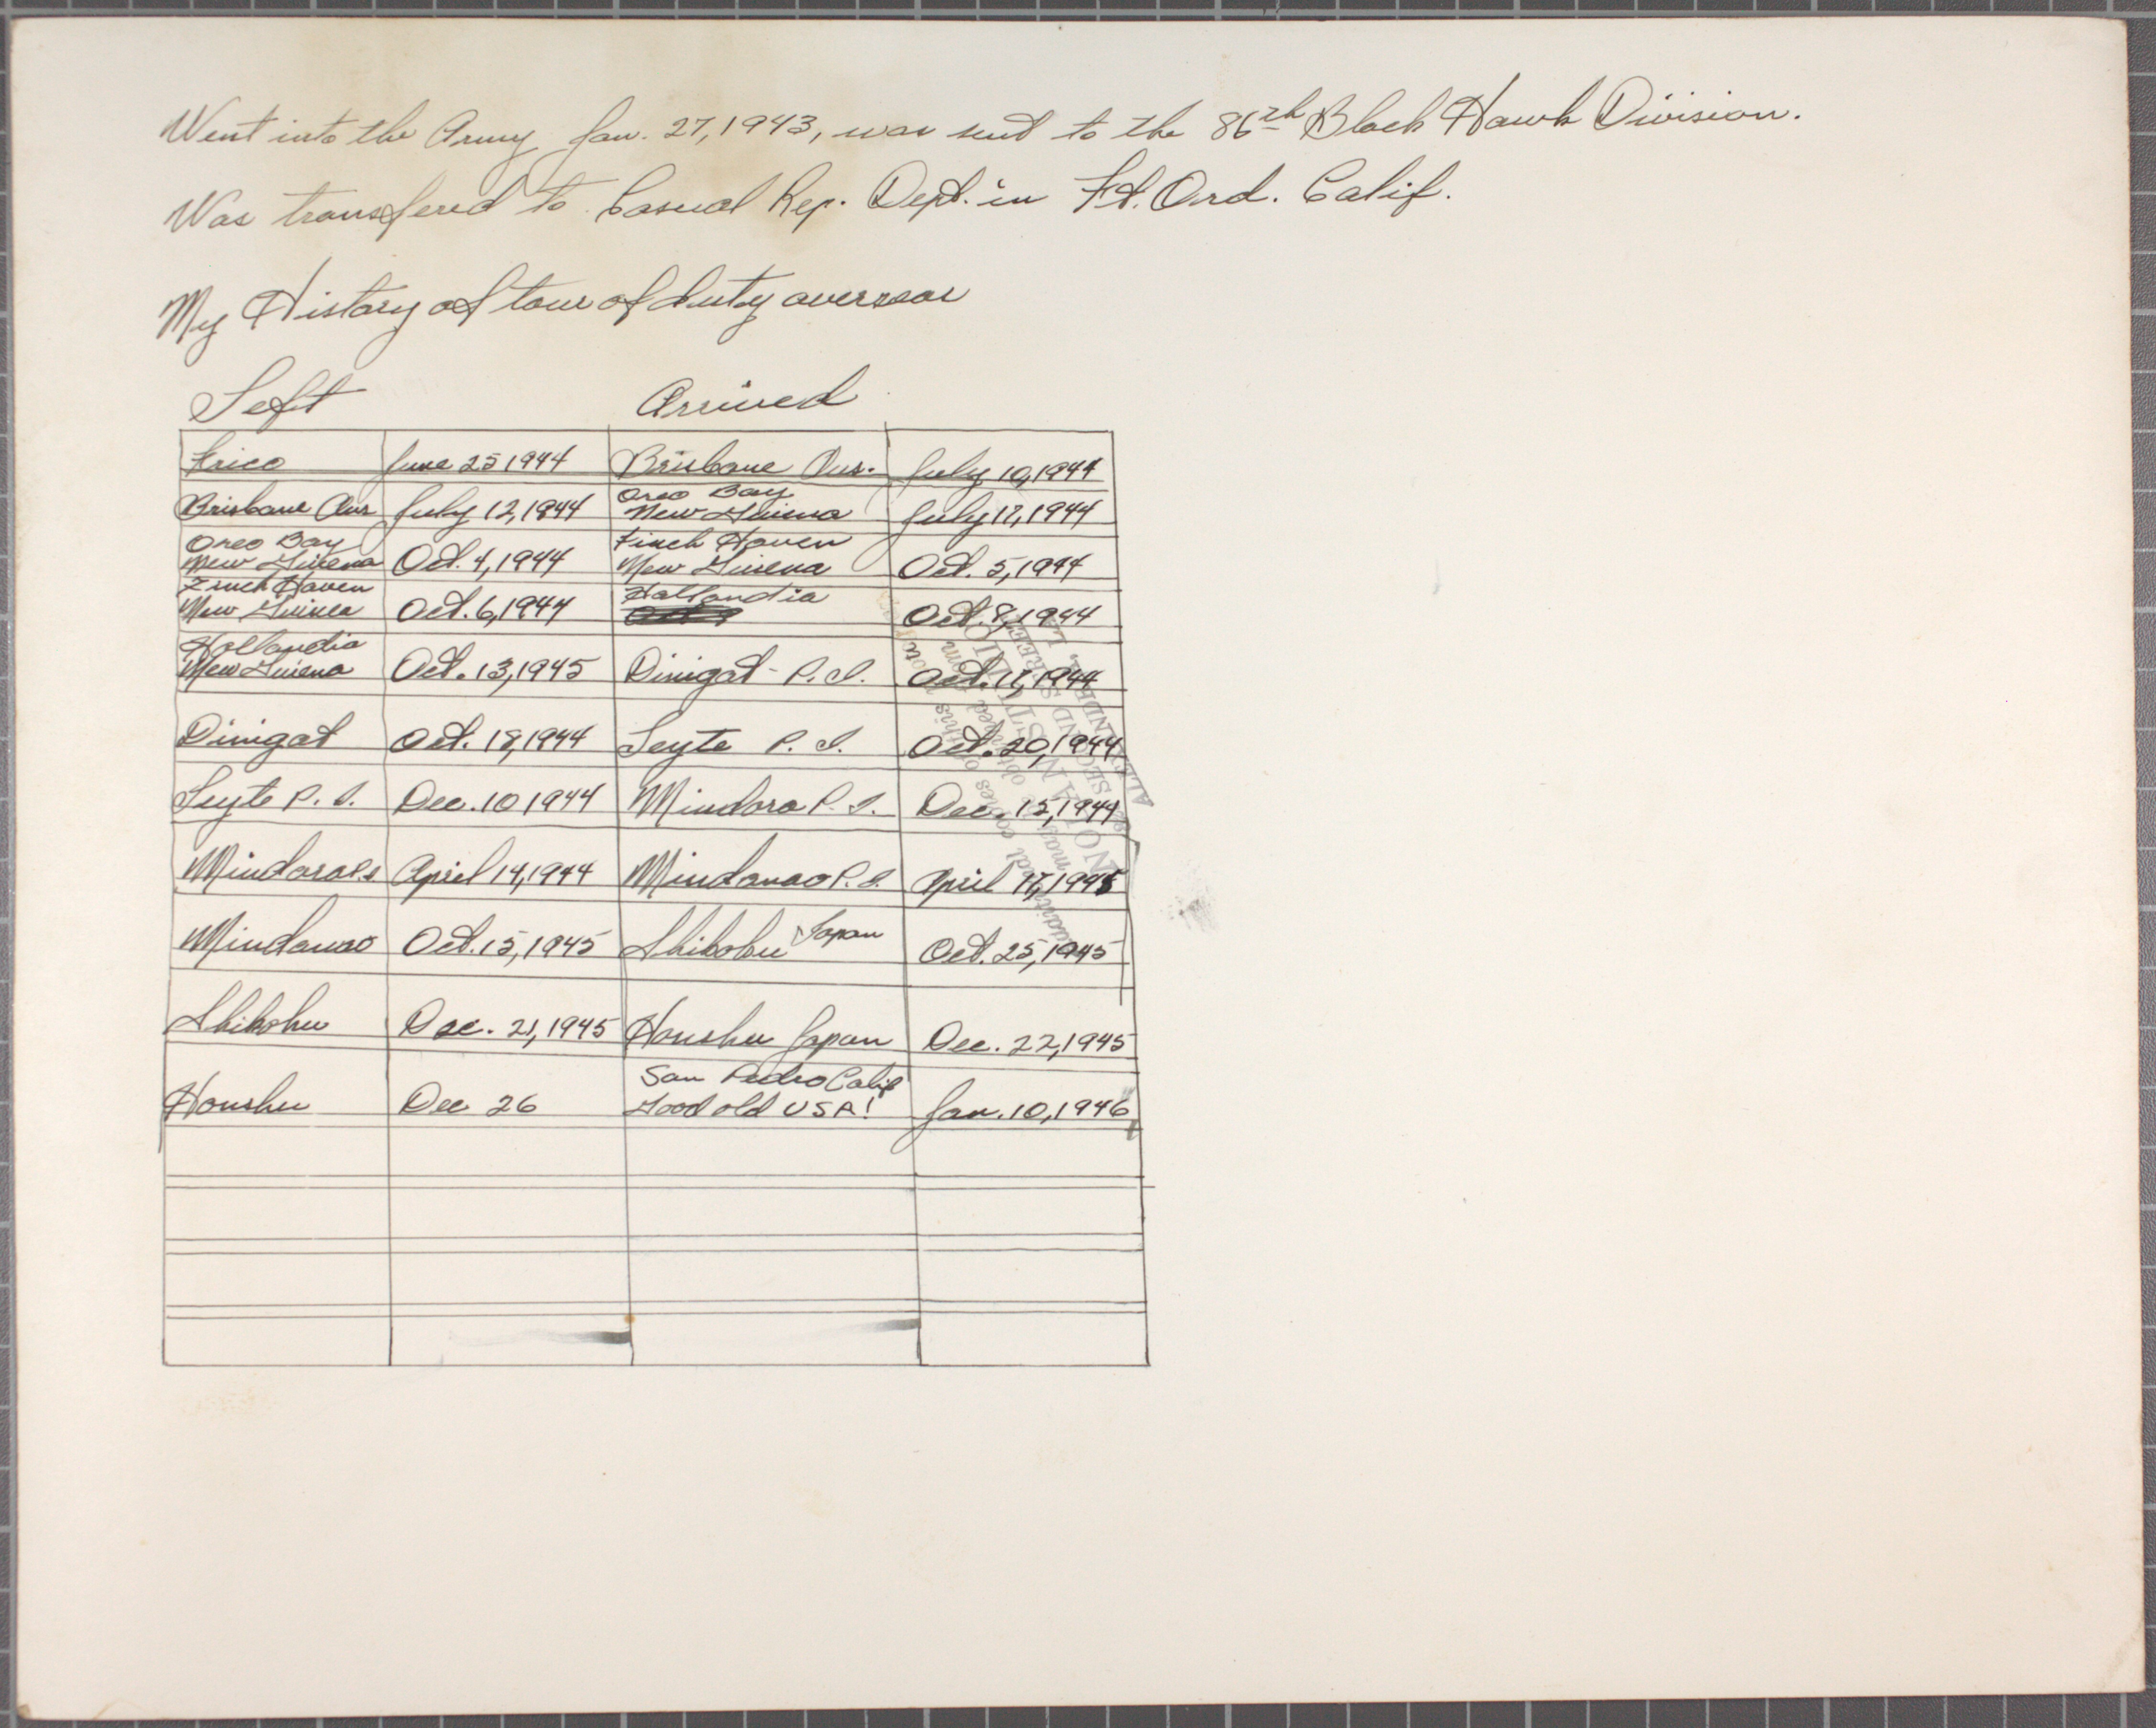 Went into the Army Jan. 27, 1943, was sent to the 86th Black Hawk Division.
Was transfered to Casual Rep. Dept. in Ft. Ord. Calif.
My History of tour of duty overseas
Left Arrived
Frico June 25 1944 Brisbane Aus. July 10, 1944
Brisbane Aus July 12, 1944 Oreo Bay New Guiena July 17, 1944
Oreo Bay New Guiena Oct. 4, 1944 Finch Haven New Guiena Oct. 5, 1944
Finch Haven New Guinea Oct. 6, 1944 Hallandia Oct. 8, 1944
Hollandia New Guiena Oct. 13, 1945 Dinigat - P. I. Oct. 17, 1944
Dinigat Oct. 18, 1944 Leyte P. I. Oct. 20, 1944
Leyte P. I. Dec. 10 1944 Mindora P. I. Dec. 15, 1944
Mindora P.I. April 14, 1944 Mindanao P. I. April 17, 1945
Mindanao Oct. 15, 1945 Shikoku Japan Oct. 25, 1945
Shikoku Dec. 21, 1945 Honshu Japan Dec. 22, 1945
Honshu Dec 26 San Pedro Calif Good old USA! Jan. 10, 1946